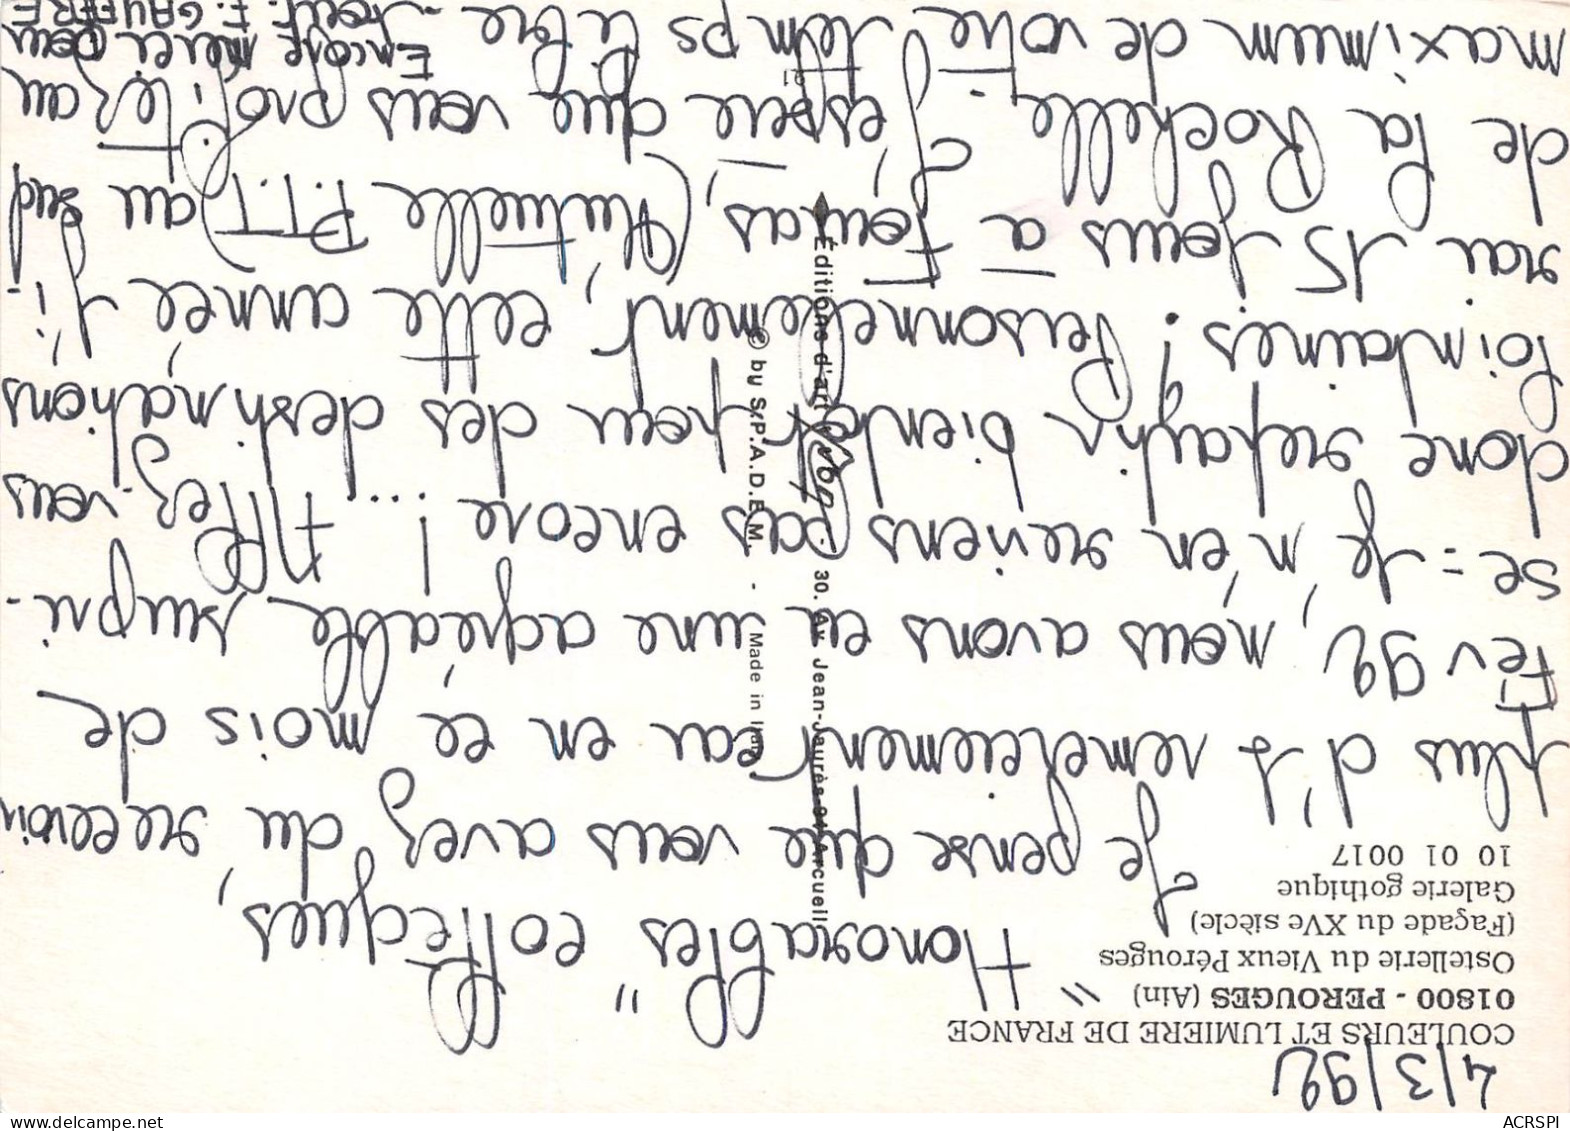 4/3/92
COULEURS ET LUMIERE DE FRANCE
01800 - PEROUGES (Ain)
Ostellerie du Vieux Pérouges
(Façade du XVe siècle)
Galerie gothique
10 01 0017
"Honorables" collègues,
Je pense que vous avez du recevoir
plus d'1 remerciement car en ce mois de
Fév 92, nous avons eu une agréable surpri-
se = Je n'en reviens pas encore !... Allez-vous
donc repartir bientôt pour des destinations
lointaines ! Personnellement, cette année j'i-
rai 15 jours à Fouras, (Mutuelle P.T.T) au sud
de la Rochelle. J'espère que vous profitez au
maximum de votre temps libre -
Encore merci pour
F. GAUFFRE
Éditions d'art Yvon - 30. Av. Jean-Jaurès-94-Arcueil
© by S.P.A.D.E.M. - Made in
ACRSPI